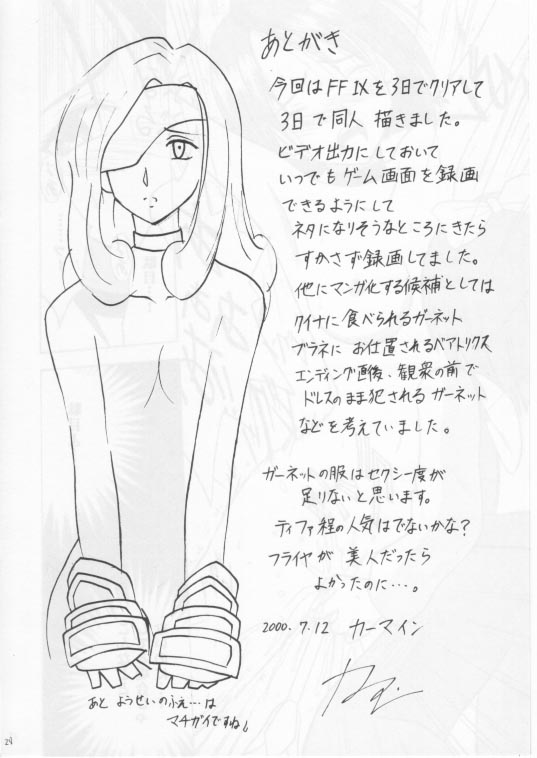 あとがき
今回はFFⅨを3日でクリアして
3日で同人描きました。
ビデオ出力にしておいて
いつでもゲーム画面を録画
できるようにして
ネタになりそうなところにきたら
すかさず録画してました。
他にマンガ化する候補としては
クイナに食べられるガーネット
ブラネにお仕置されるベアトリクス
エンディング直後、観衆の前で
ドレスのまま犯されるガーネット
などを考えていました。
ガーネットの服はセクシー度が
足りないと思います。
ティファ程の人気はでないかな?
フライヤが美人だったら
よかったのに…。
2000.7.12 カーマイン
あとようせいのふえ…は
マチガイですね
24